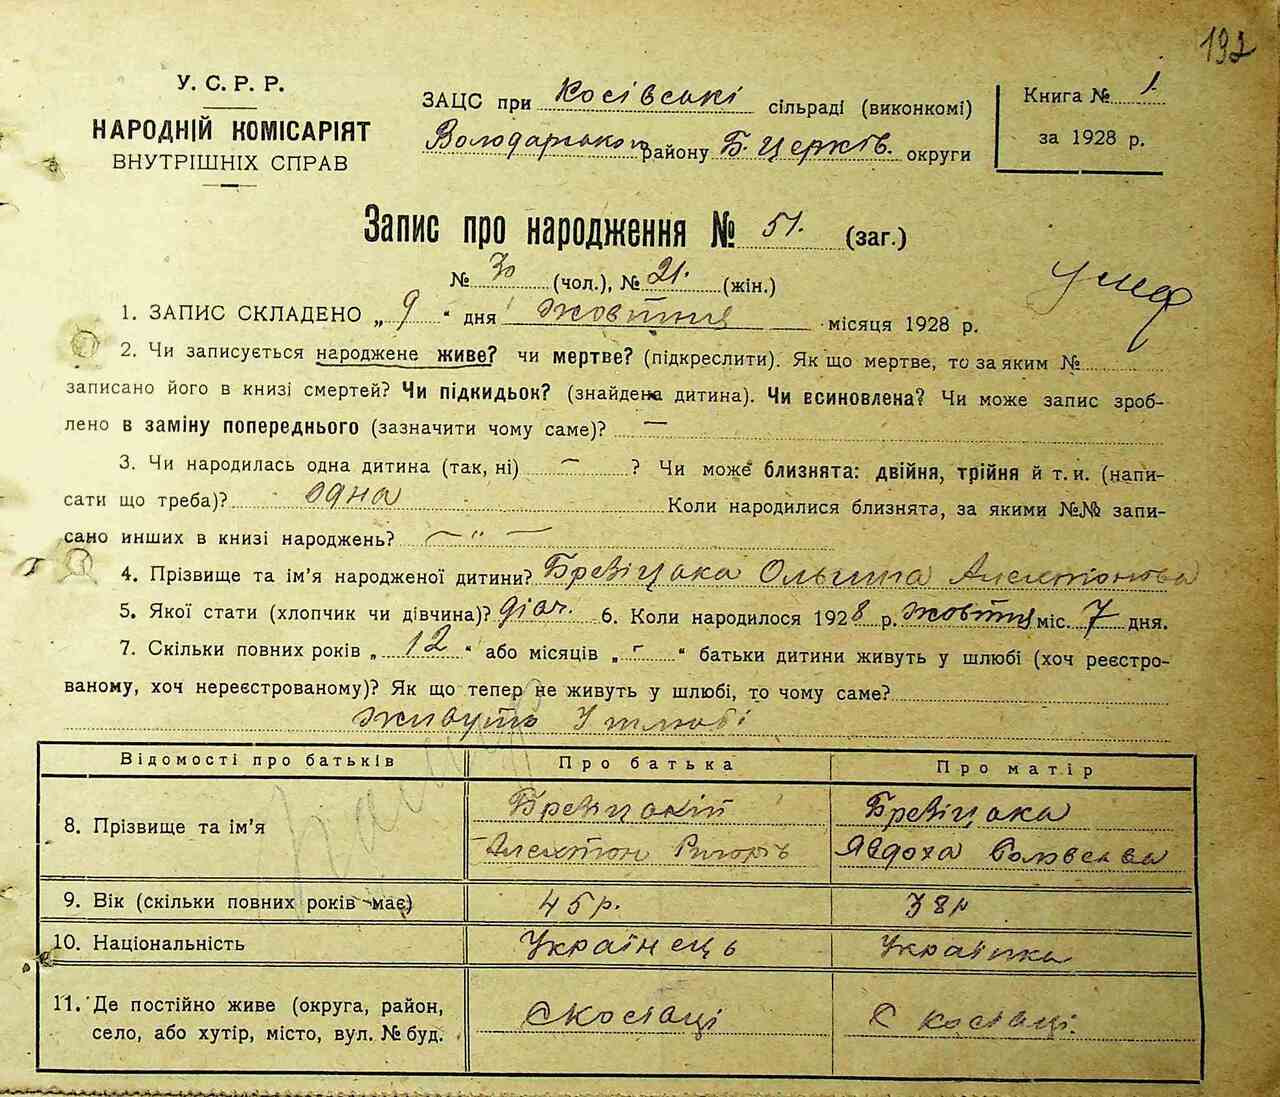 192
У. С. Р. Р.
НАРОДНІЙ КОМІСАРІЯТ
ВНУТРІШНІХ СПРАВ
ЗАЦС при Косівські сільраді (виконкомі)
Володарського району Б. Церків. округи
Книга № 1
за 1928 р.
Запис про народження № 51. (заг.)
№ 30 (чол.), № 21. (жін.)
1. ЗАПИС СКЛАДЕНО „ 9 “ дня жовтня місяця 1928 р.
2. Чи записується народжене живе? чи мертве? (підкреслити). Як що мертве, то за яким №
записано його в книзі смертей? Чи підкидьок? (знайдена дитина). Чи всиновлена? Чи може запис зроб-
лено в заміну попереднього (зазначити чому саме)? —
3. Чи народилась одна дитина (так, ні) — ? Чи може близнята: двійня, трійня й т. и. (напи-
сати що треба)? одна Коли народилися близнята, за якими №№ запи-
сано инших в книзі народжень? — „ —
4. Прізвище та ім’я народженої дитини? Ольгина
5. Якої стати (хлопчик чи дівчина)? дівч. 6. Коли народилось 1928 р. жовтня міс. 7 дня.
7. Скільки повних років „ 12 “ або місяців „ - “ батьки дитини живуть у шлюбі (хоч реєстро-
ваному, хоч нереєстрованому)? Як що тепер не живуть у шлюбі, то чому саме?
живуть у шлюбі
Відомості про батьків Про батька Про матір
8. Прізвище та ім’я
Явдоха
9. Вік (скільки повних років має) 45 р. 38 р
10. Національність Українець Українка
11. Де постійно живе (округа, район,
село, або хутір, місто, вул. № буд.